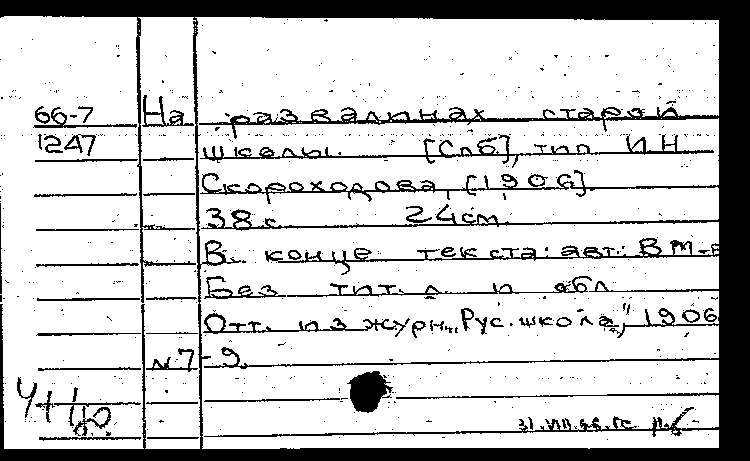 66-7 На развалинах старой
1247 школы. [Спб], тип И Н
Скороходова, [1906].
38 с 24см.
В конце текста: авт.: В М-в
Без тит. л и обл
Отт. из журн. „Рус. школа", 1906
N 7-9.
31.VIII.66.ГС